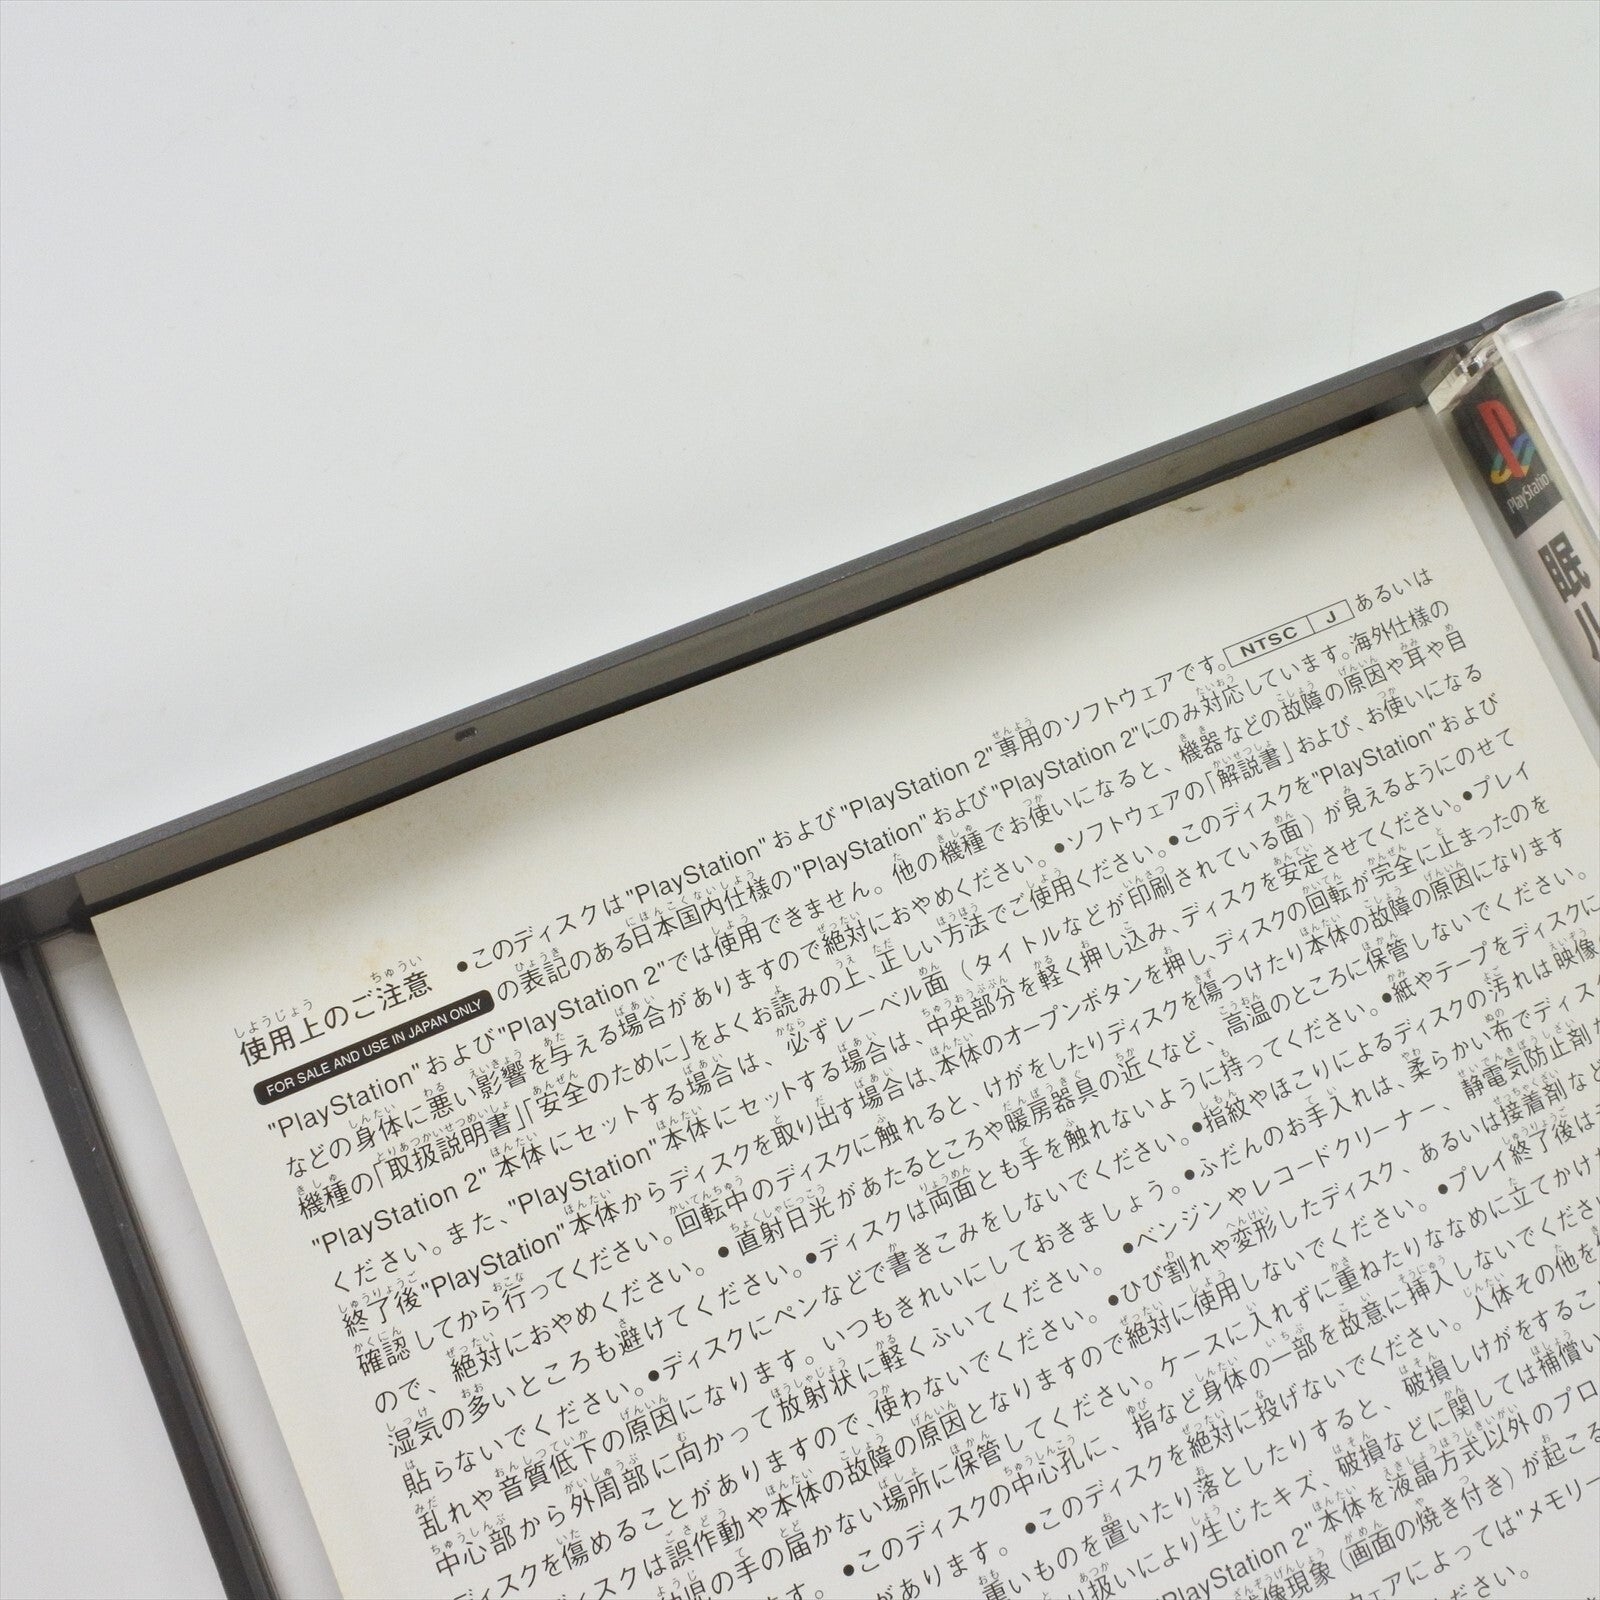 使用上のご注意
●このディスクは"PlayStation"および"PlayStation 2"専用のソフトウェアです。NTSC J あるいは
FOR SALE AND USE IN JAPAN ONLY の表記のある日本国内仕様の"PlayStation"および"PlayStation 2"にのみ対応しています。海外仕様の
"PlayStation"および"PlayStation 2"では使用できません。他の機種でお使いになると、機器などの故障の原因や耳や目
などの身体に悪い影響を与える場合がありますので絶対におやめください。●ソフトウェアの「解説書」および、お使いになる
機種の「取扱説明書」「安全のために」をよくお読みの上、正しい方法でご使用ください。●このディスクを"PlayStation"および
"PlayStation 2"本体にセットする場合は、必ずレーベル面(タイトルなどが印刷されている面)が見えるようにのせて
ください。また、"PlayStation"本体にセットする場合は、中央部分を軽く押し込み、ディスクを安定させてください。●プレイ
終了後"PlayStation"本体からディスクを取り出す場合は、本体のオープンボタンを押し、ディスクの回転が完全に止まったのを
確認してから行ってください。回転中のディスクに触れると、けがをしたりディスクを傷つけたり本体の故障の原因になります
ので、絶対におやめください。●直射日光があたるところや暖房器具の近くなど、高温のところに保管しないでください。
湿気の多いところも避けてください。●ディスクは両面とも手を触れないように持ってください。●紙やテープをディスクに
貼らないでください。●ディスクにペンなどで書きこみをしないでください。●指紋やほこりによるディスクの汚れは映像の
乱れや音質低下の原因になります。いつもきれいにしておきましょう。●ふだんのお手入れは、柔らかい布でディス
中心部から外周部に向かって放射状に軽くふいてください。●ベンジンやレコードクリーナー、静電気防止剤
ディスクを傷めることがありますので、使わないでください。●ひび割れや変形したディスク、あるいは接着剤など
ディスクは誤作動や本体の故障の原因となりますので絶対に使用しないでください。●プレイ終了後は
幼児の手の届かない場所に保管してください。ケースに入れずに重ねたりななめに立てかけ
す。●このディスクの中心孔に、指など身体の一部を故意に挿入しないでくださ
があります。●このディスクを絶対に投げないでください。人体その他を
重いものを置いたり落としたりすると、破損しけがをするこ
扱いにより生じたキズ、破損などに関しては補償い
PlayStation 2"本体を液晶方式以外のプロ
像現象(画面の焼き付き)が起こる
ウェアによっては"メモリー
ください。
PlayStatio
眠